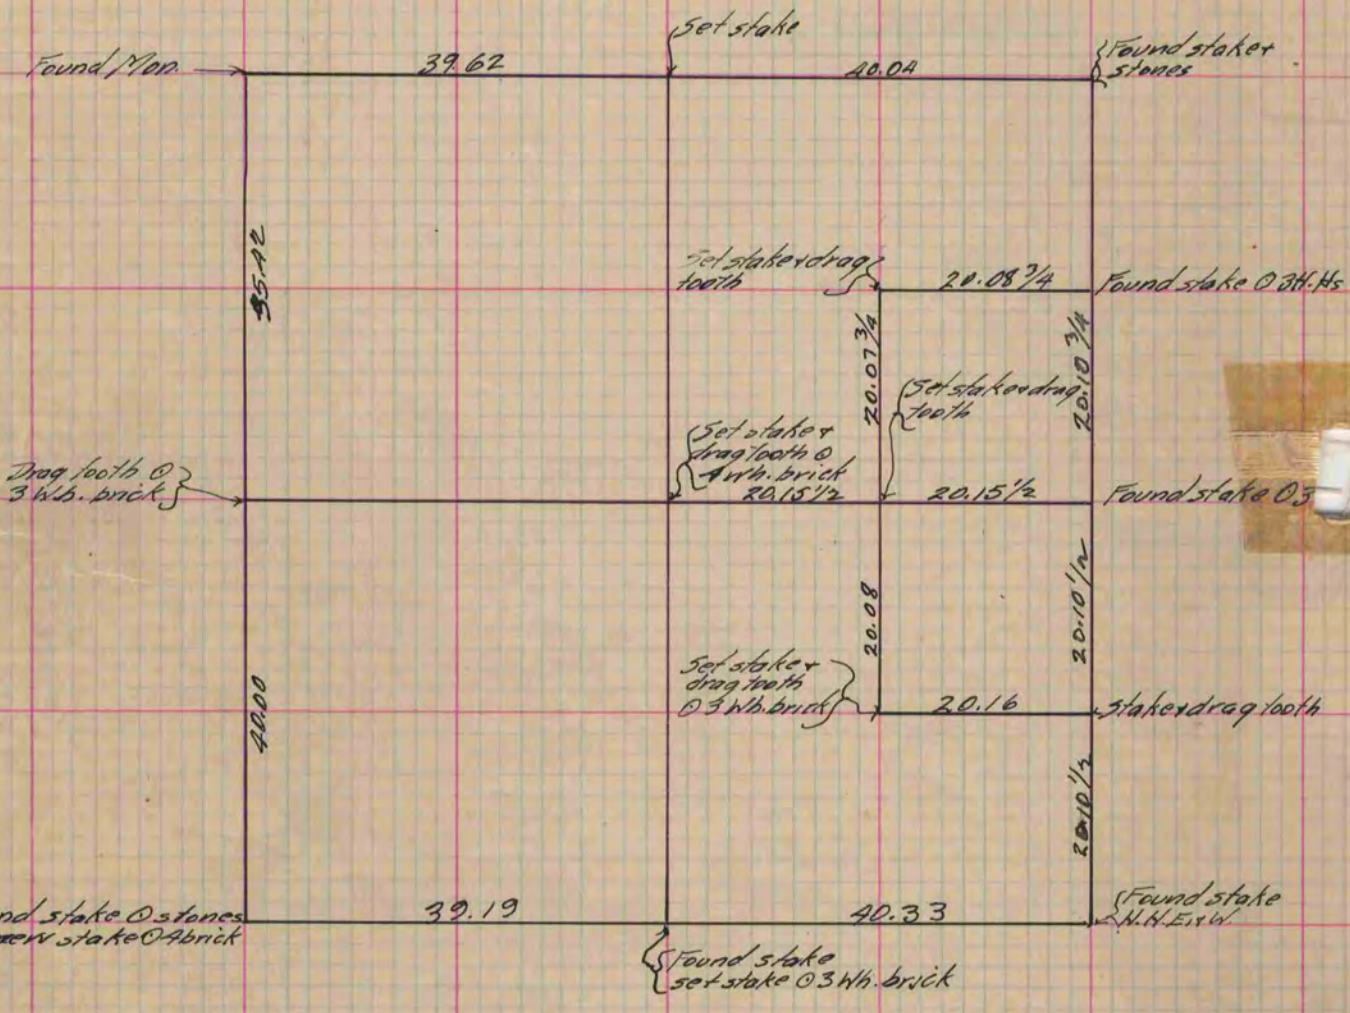 Set stake
Found Mon.
39.62
40.04
Found stake &
stones
35.42
Set stake & drag
tooth
20.08 3/4
Found stake ⊙ 3 H.Hs
20.07 3/4
20.10 3/4
Set stake & drag
tooth
Set stake &
drag tooth ⊙
4 Wh. brick
Drag tooth ⊙
3 Wh. brick
20.15 1/2
20.15 1/2
Found stake ⊙ 3
20.08
20.10 1/2
40.00
Set stake &
drag tooth
⊙ 3 Wh. brick
20.16
Stake & drag tooth
20.10 1/2
nd stake ⊙ stones
new stake ⊙ 4 brick
39.19
40.33
Found stake
N.H.E. & W.
Found stake
set stake ⊙ 3 Wh. brick